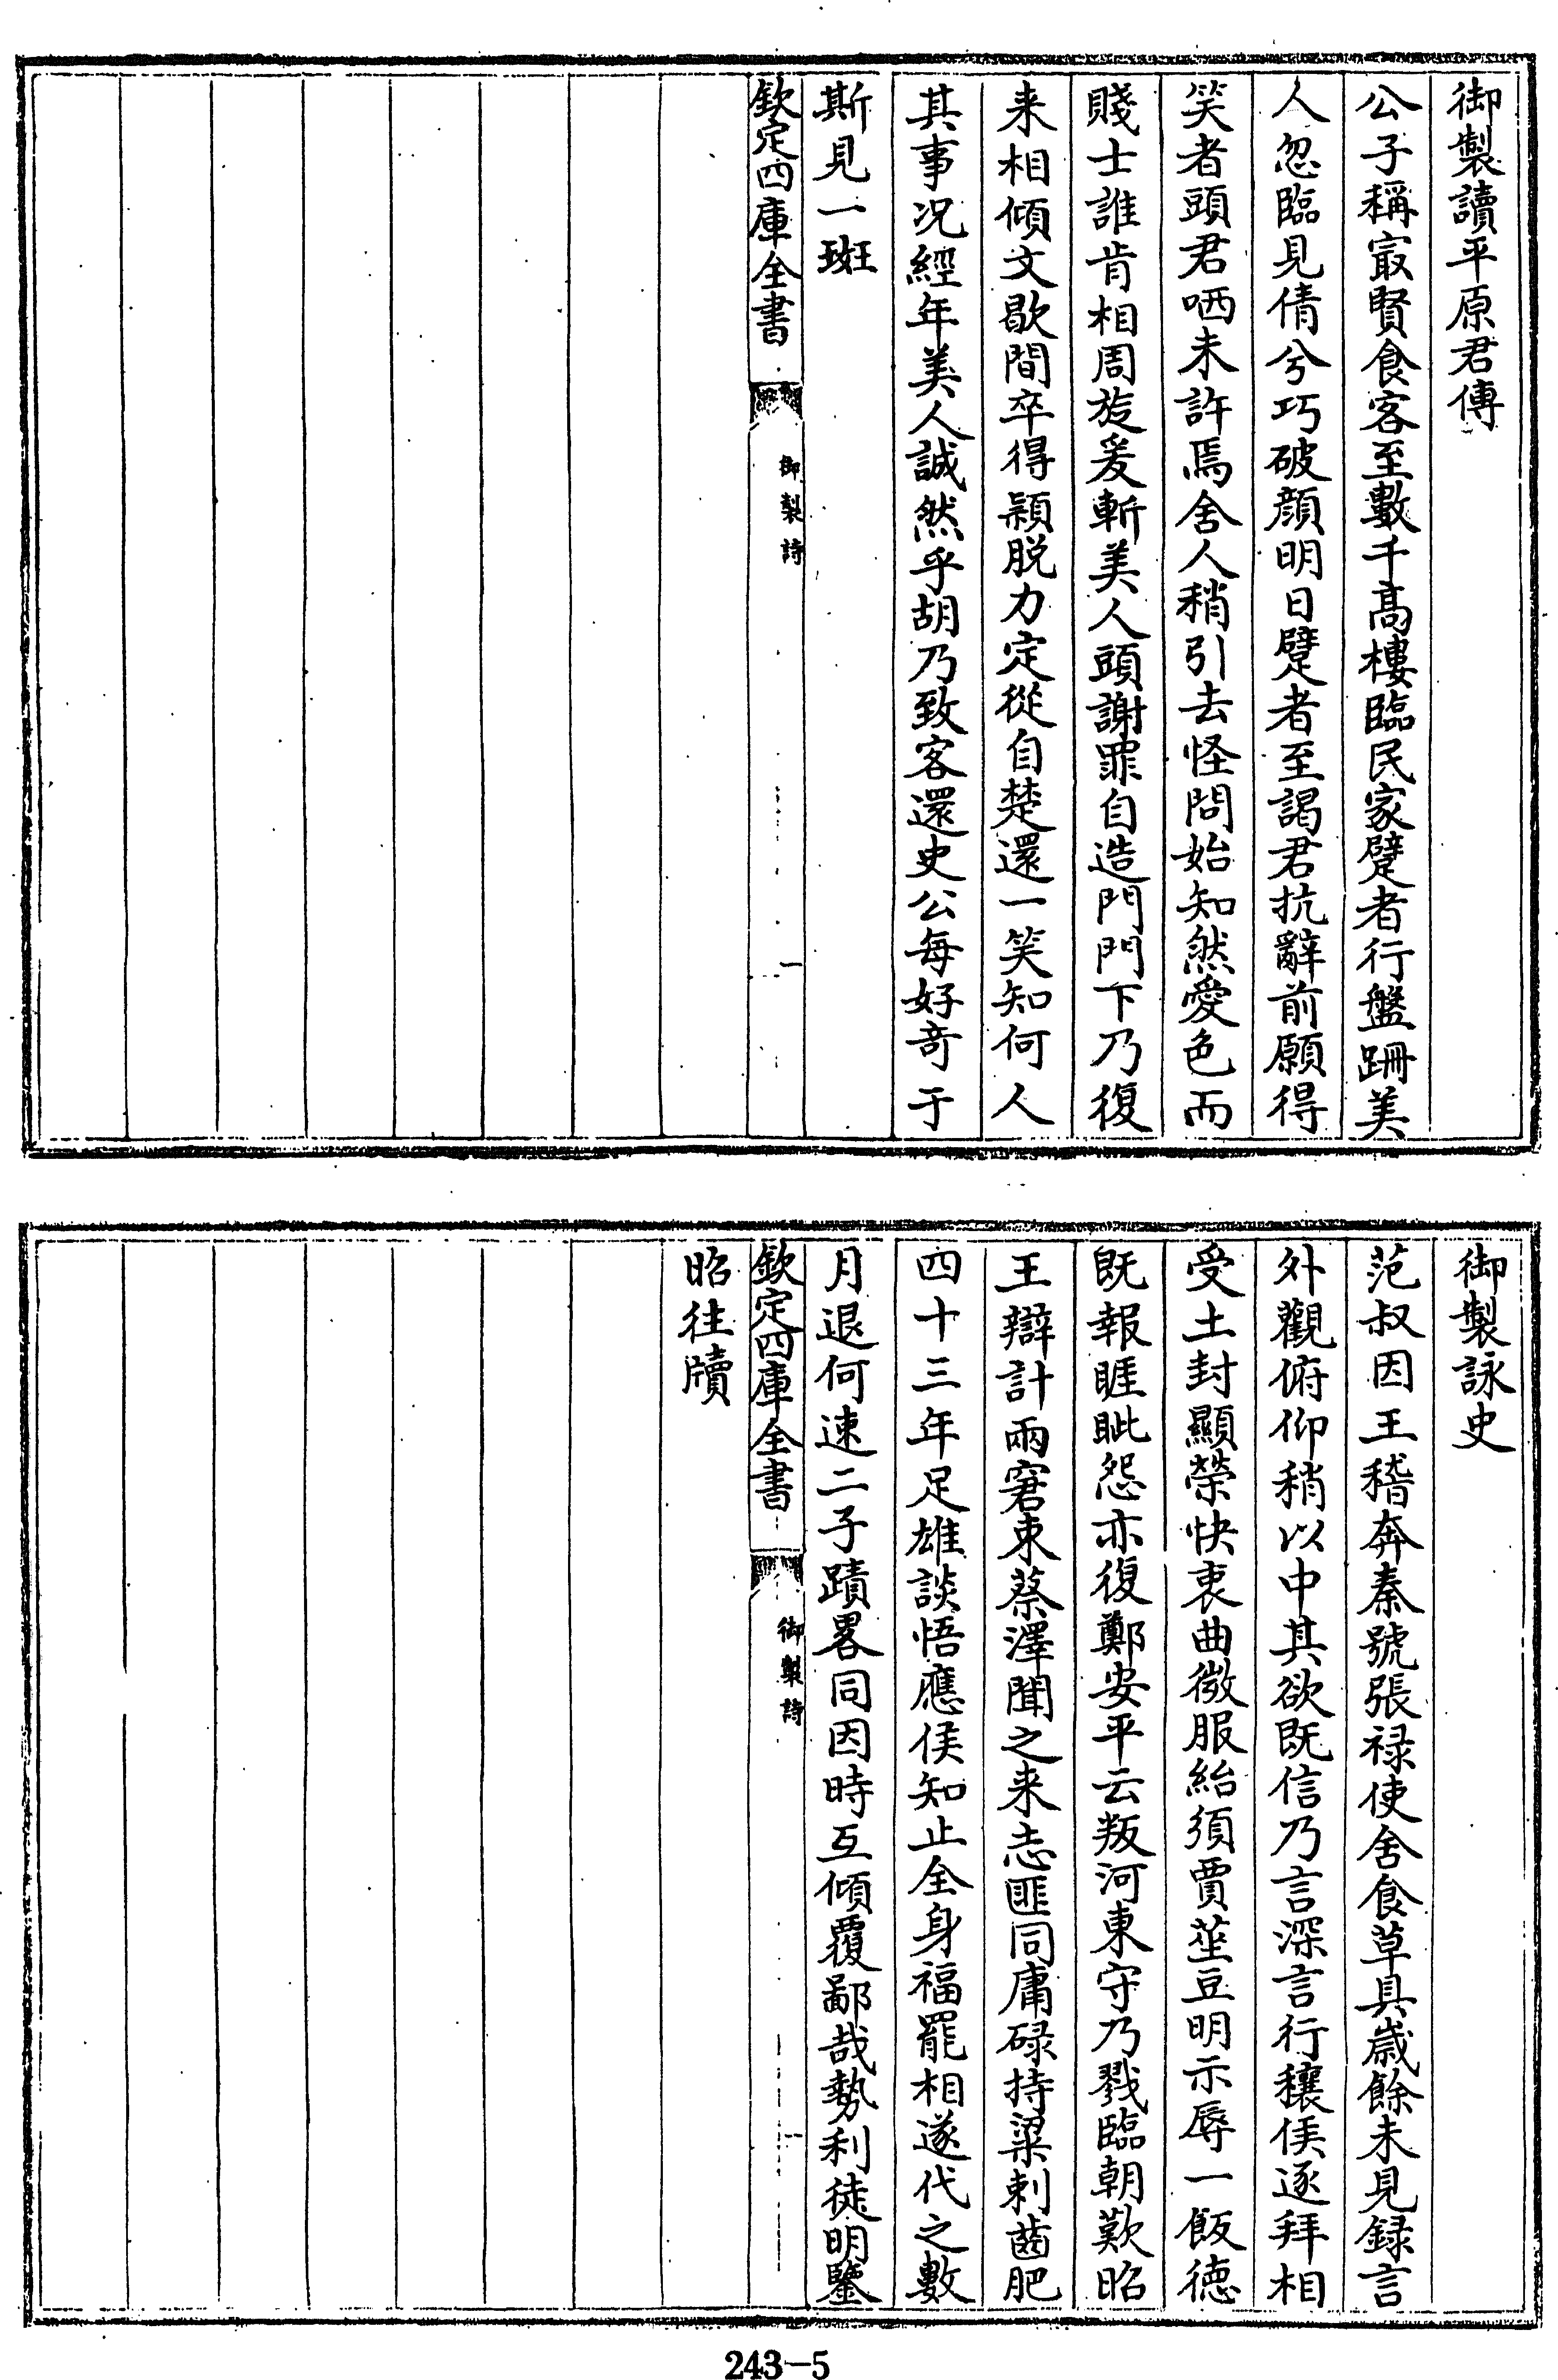 御製讀平原君傳
公子稱㝡賢食客至數千高樓臨民家躄者行盤跚美
人忽臨見倩兮巧破顏明日躄者至謁君抗辭前願得
笑者頭君哂未許焉舍人稍引去怪問始知然愛色而
賤士誰肯相周旋爰斬美人頭謝罪自造門門下乃復
来相傾文歇間卒得穎脱力定從自楚還一笑知何人
其事况經年美人誠然乎胡乃致客還史公每好竒于
斯見一斑
欽定四庫全書
御製詩
一
御製詠史
范叔因王稽奔秦號張禄使舍食草具歲餘未見録言
外觀俯仰稍以中其欲既信乃言深言行穰侯逐拜相
受土封顯榮快衷曲微服紿須賈莝豆明示辱一飯徳
既報睚眦怨亦復鄭安平云叛河東守乃戮臨朝歎昭
王辯計兩窘束蔡澤聞之来志匪同庸碌持粱刺齒肥
四十三年足雄談悟應侯知止全身福罷相遂代之數
月退何速二子蹟畧同因時互傾覆鄙哉勢利徒明鑒
欽定四庫全書
御製詩
一
昭往牘
243-5